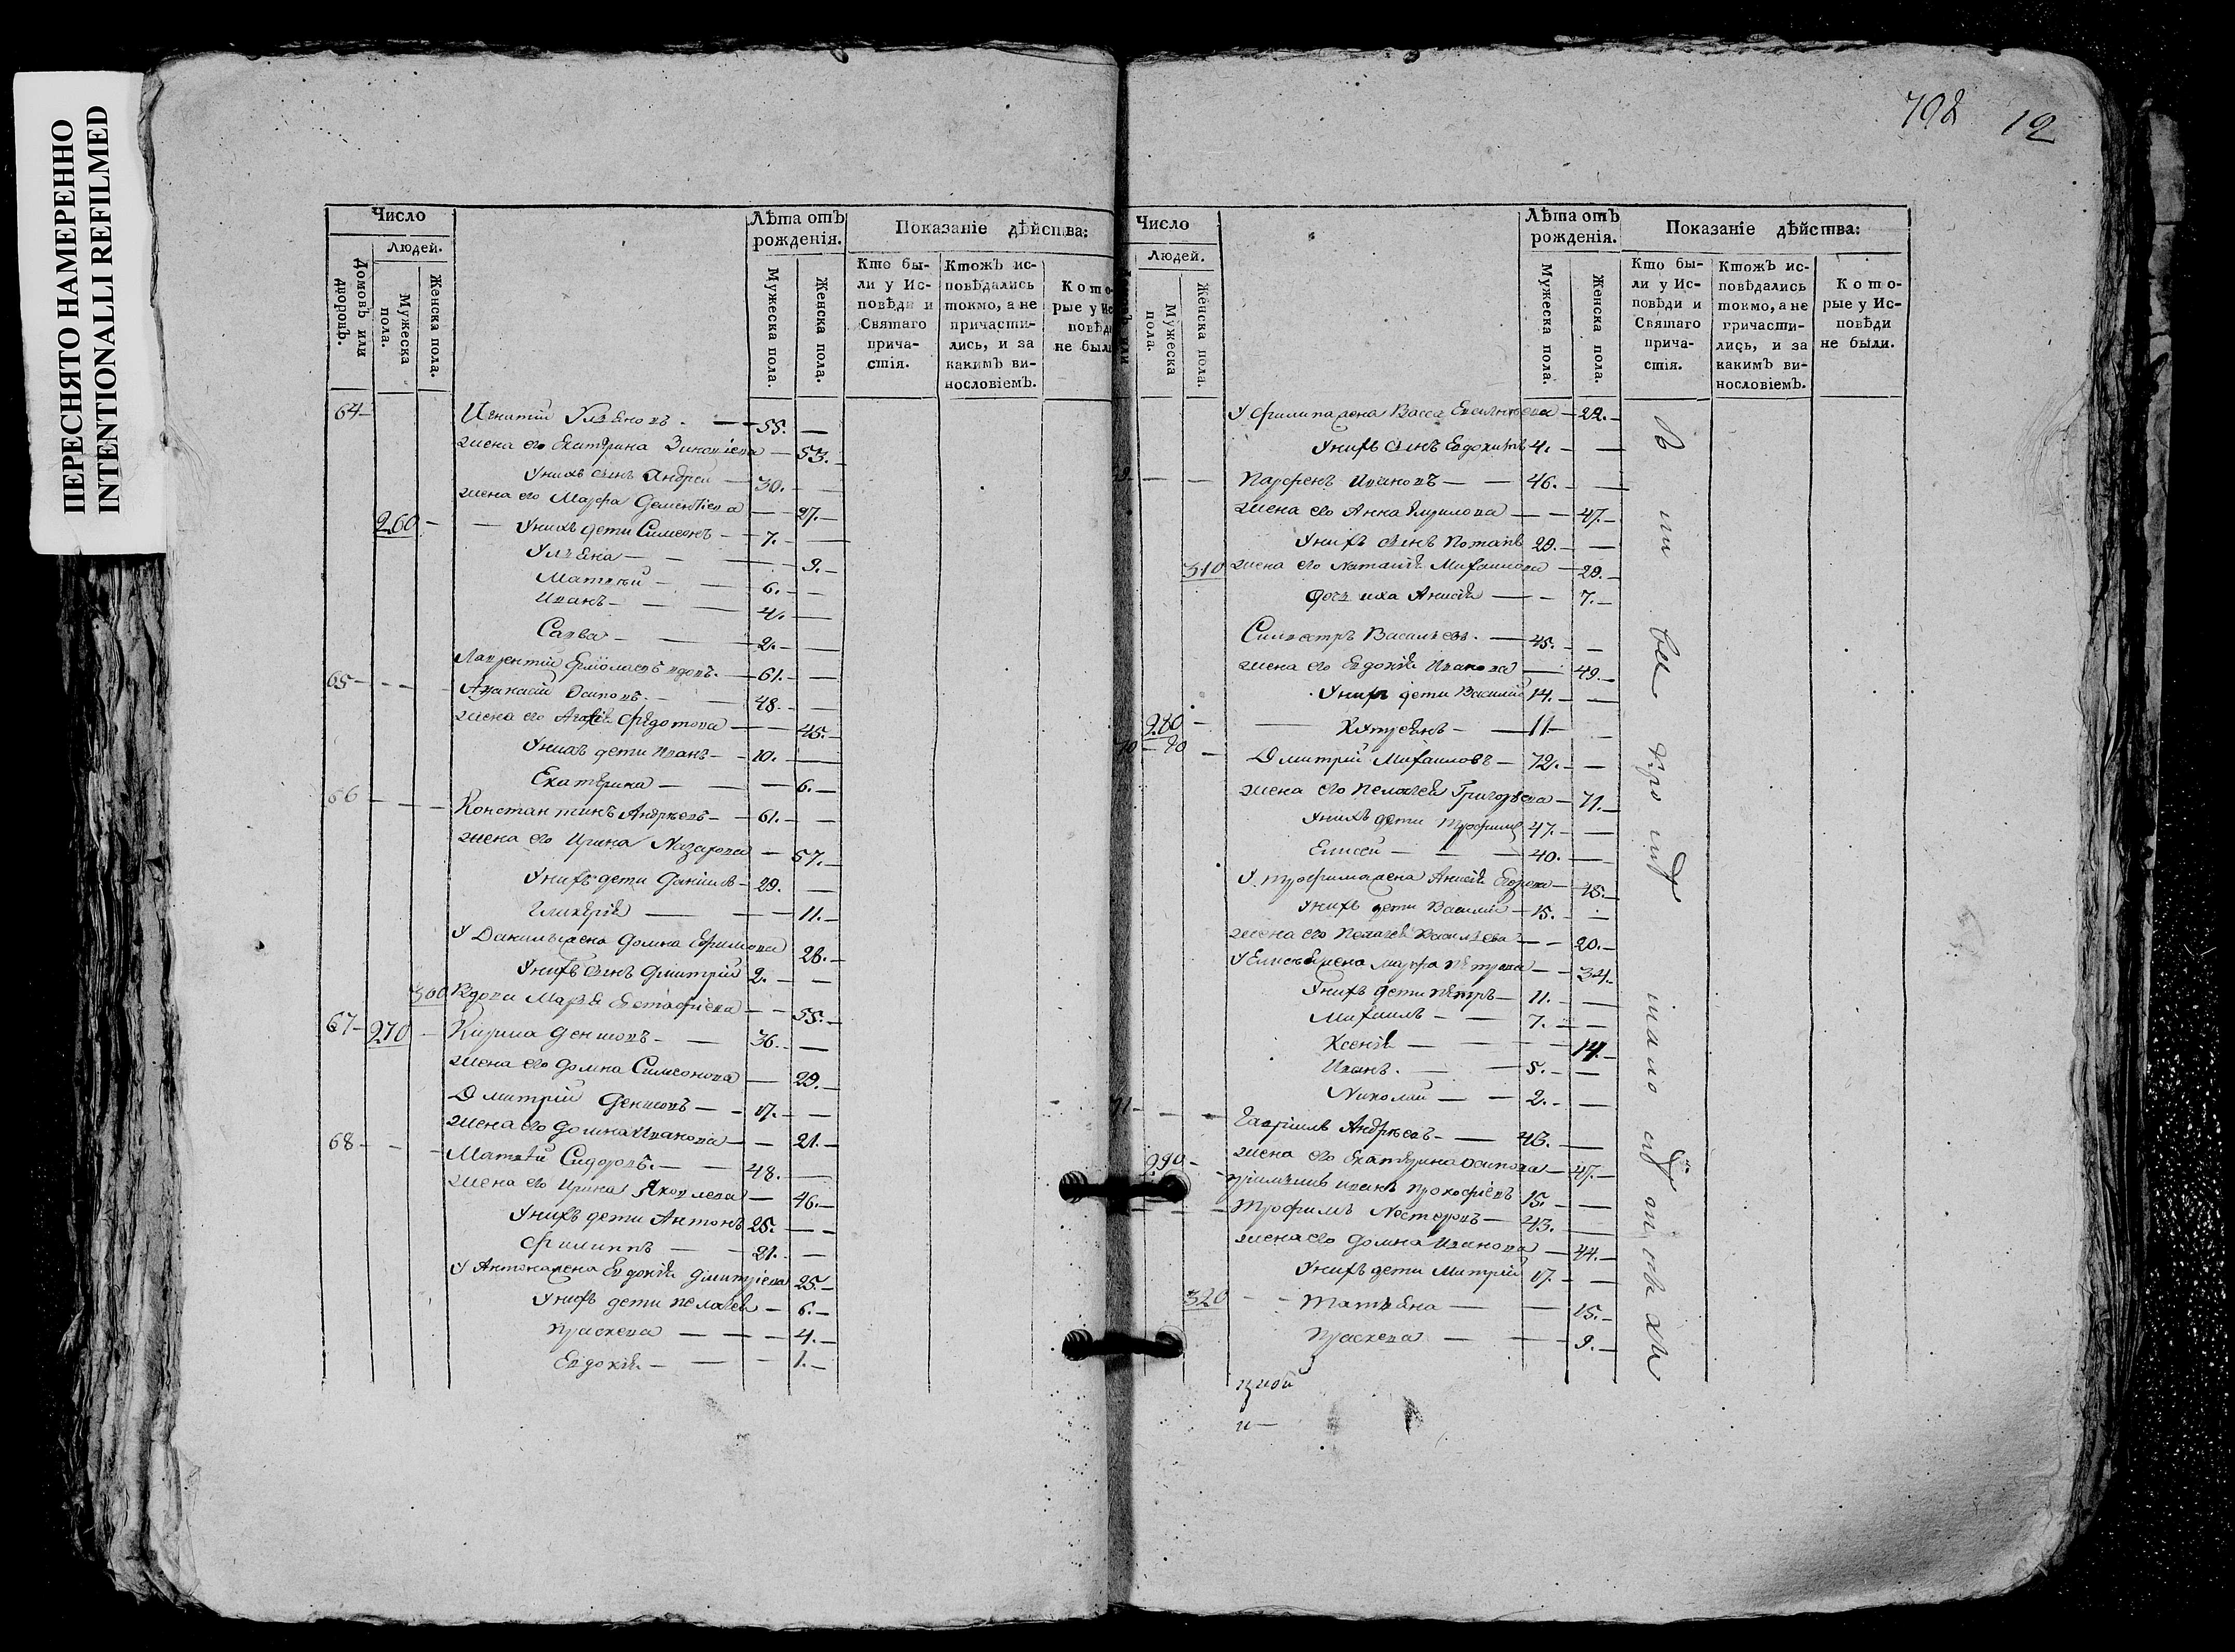 ПЕРЕСНЯТО НАМЕРЕННО
INTENTIONALLI REFILMED
798 12
Число
Людей.
Домовъ или дворовъ.
Мужеска пола.
Женска пола.
Лѣта отъ рожденія.
Мужеска пола.
Женска пола.
Показаніе дѣйства:
Кто бы-
ли у Ис-
повѣди и
Святаго
прича-
стія.
Ктожъ ис-
повѣдались
токмо, а не
причасти-
лись, и за
какимъ ви-
нословіемъ.
Кото-
рые у Ис
повѣди
не были
64 Игнатій Ульяновъ 55.
жена его Екатерина Зиновіева 53.
У нихъ сынъ Андрей 30.
жена его Марфа Дементіева 27.
260 У нихъ дети Симеонъ 7.
Ульяна 9.
Матвей 6.
Иванъ 4.
Савва 2.
Лаврентій Ермолаевъ вдовъ 61.
65 Афанасій Осиповъ 48.
жена его Агафія Федотова 45.
У нихъ дети Иванъ 10.
Екатерина 6.
66 Константинъ Андреевъ 61.
жена его Ирина Назарова 57.
У нихъ дети Данiилъ 29.
Гликерія 11.
У Данилы жена Домна Ефимова 28.
У нихъ сынъ Дмитрий 2.
300 Вдова Марья Евстафіева 55.
67 270 Кирила Денисовъ 36.
жена его Домна Симеонова 29.
Дмитрій Денисовъ 17.
жена его Домна Иванова 21.
68 Матвей Сидоровъ 48.
жена его Ирина Яковлева 46.
У нихъ дети Антонъ 25.
Филиппъ 21.
У Антона жена Евдокія Дмитріева 25.
У нихъ дети Пелагея 6.
Праскева 4.
Евдокія 1.
Число
Людей.
Мужеска пола.
Женска пола.
Лѣта отъ рожденія.
Мужеска пола.
Женска пола.
Показаніе дѣйства:
Кто бы-
ли у Ис-
повѣди и
Святаго
прича-
стія.
Ктожъ ис-
повѣдались
токмо, а не
гричасти-
лись, и за
какимъ ви-
нословіемъ.
Кото-
рые у Ис-
повѣди
не были.
У Филипа жена Васса 22.
У нихъ сынъ Евдокимъ 4.
Парфенъ Ивановъ 46.
жена его Анна 47.
У нихъ сынъ Потапъ 29.
310 жена его Наталія Михаилова 29.
Дочь ихъ Анисія 7.
Силвестръ Васильевъ 45.
жена его Евдокія Иванова 49.
У нихъ дети Василій 14.
280 11
70 Дмитрій Михаиловъ 72.
жена его Пелагея Григорьева 71.
У нихъ дети Трофимъ 47.
Елисей 40.
У Трофима жена Анисія Егорова 45.
У нихъ дети Василій 15.
жена его Пелагея Васильева 20.
У Елисея жена Марфа Петрова 34.
У нихъ дети Петръ 11.
Михаилъ 7.
Ксенія 14.
Иванъ 5.
Николай 2.
71 Гавріилъ Андреевъ 46.
жена его Екатерина Осипова 47.
290 Иванъ Прокофіевъ 15.
Трофимъ Нестеровъ 43.
жена его Домна Иванова 44.
У нихъ дети Митрій 17.
320 Татьяна 15.
Праскева 9.